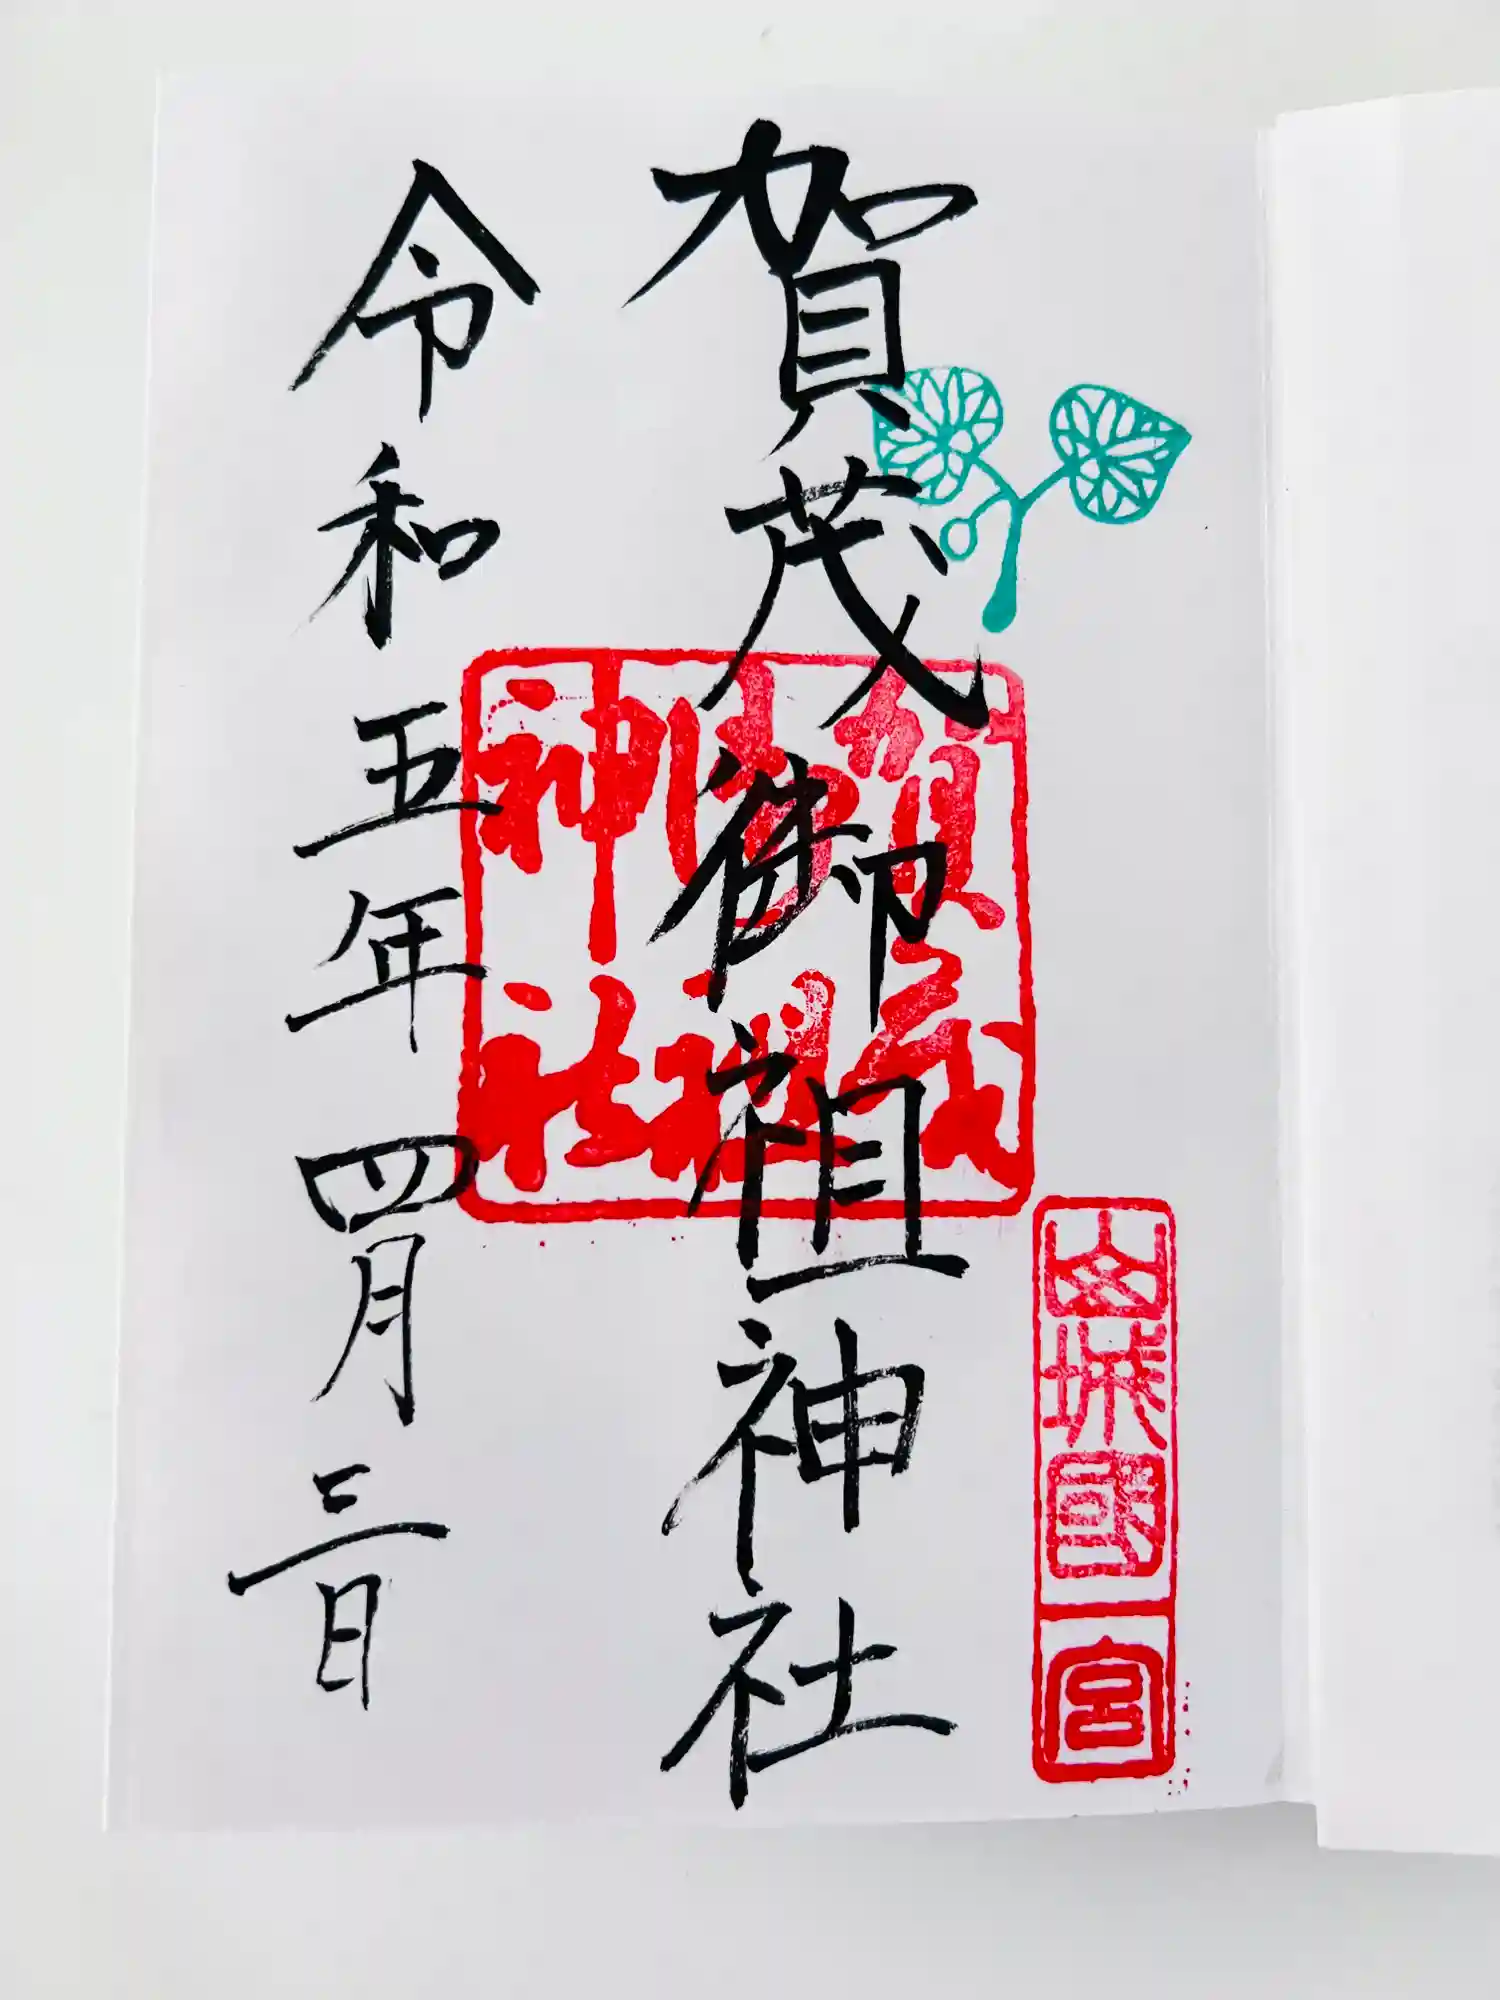 賀茂御祖神社
令和五年四月三日
賀茂
御祖
神社
山城國
一宮